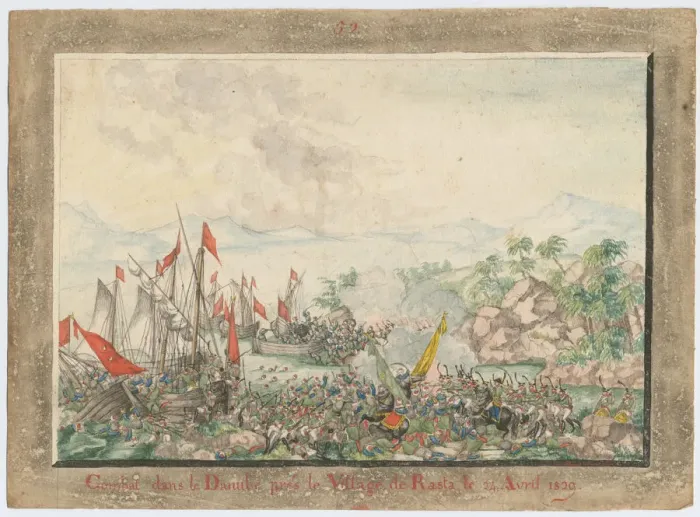 Combat dans le Danube près le Village de Rasta, le 24. Avril 1829.